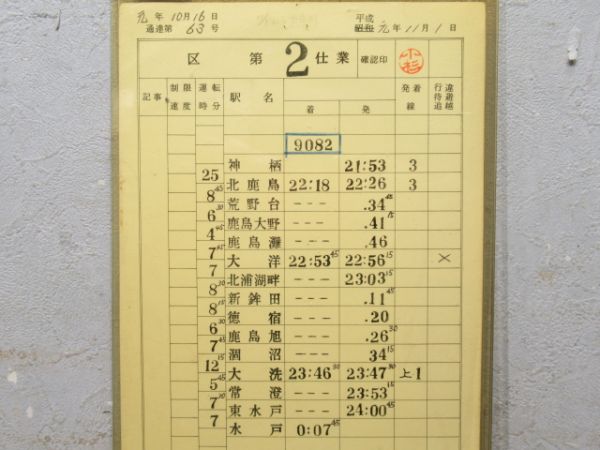 元年 10月16日
通達第 63号
平成
昭和 元年 11月 1日
区 第 2 仕業 確認印 小杉
記事 制限速度 運転時分 駅名 着 発 発着線 行違待避追越
9082
神栖 21:53 3
25
北鹿島 22:18 22:26 3
8 45
荒野台 --- .34 45
6 30
鹿島大野 --- .41 15
4 45
鹿島灘 --- .46
7 45
大洋 22:53 45 22:56 15 ×
7
北浦湖畔 --- 23:03 15
8 30
新鉾田 --- .11 45
8 15
徳宿 --- .20
6 30
鹿島旭 --- .26 30
7 45
涸沼 --- 34 15
12 15
大洗 23:46 30 23:47 30 上1
5 45
常澄 --- 23:53 15
7 30
東水戸 --- 24:00 45
7
水戸 0:07 45